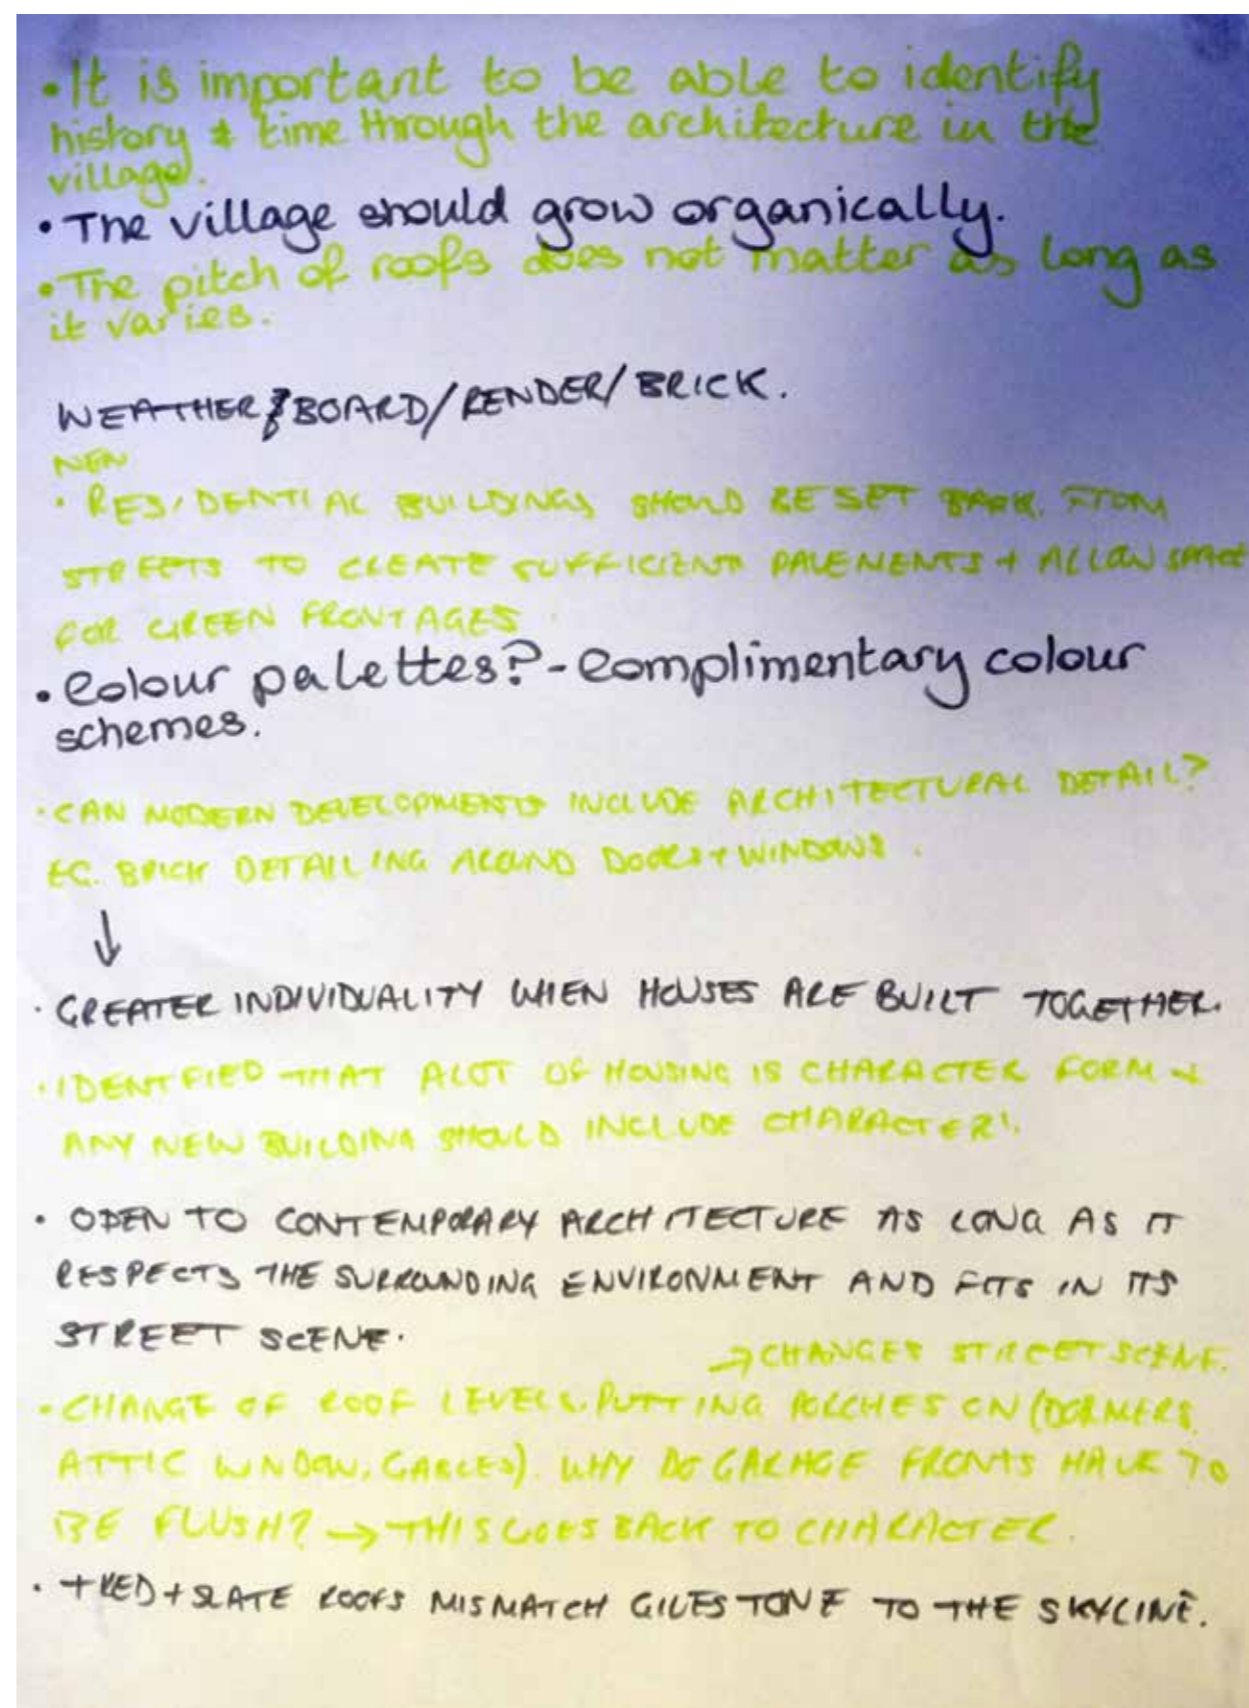 • It is important to be able to identify
history & time through the architecture in the
village.
• The village should grow organically.
• The pitch of roofs does not matter as long as
it varies.
WEATHER BOARD/RENDER/BRICK.
NEW
• RESIDENTIAL BUILDINGS SHOULD BE SET BACK FROM
STREETS TO CREATE SUFFICIENT PAVEMENTS + ALLOW SPACE
FOR GREEN FRONTAGES.
• Colour palettes? - Complimentary colour
schemes.
• CAN MODERN DEVELOPMENTS INCLUDE ARCHITECTURAL DETAIL?
EG. BRICK DETAILING AROUND DOORS + WINDOWS.
↓
• GREATER INDIVIDUALITY WHEN HOUSES ARE BUILT TOGETHER.
• IDENTIFIED THAT ALOT OF HOUSING IS CHARACTER FORM +
ANY NEW BUILDING SHOULD INCLUDE CHARACTER!.
• OPEN TO CONTEMPORARY ARCHITECTURE AS LONG AS IT
RESPECTS THE SURROUNDING ENVIRONMENT AND FITS IN ITS
STREET SCENE.
→ CHANGES STREET SCENE.
• CHANGE OF ROOF LEVELS, PUTTING PORCHES ON (DORMERS,
ATTIC WINDOW, GABLES). WHY DO GARAGE FRONTS HAVE TO
BE FLUSH? → THIS GOES BACK TO CHARACTER.
• + RED + SLATE ROOFS MISMATCH GIVES TONE TO THE SKYLINE.